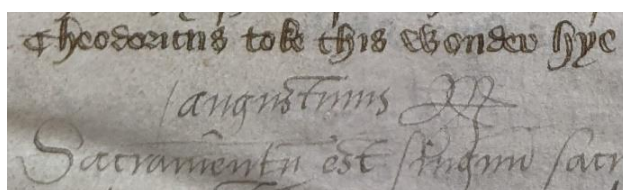 Theodoricus toke this wonder hye
augustinus
Sacramentū est signum sacr